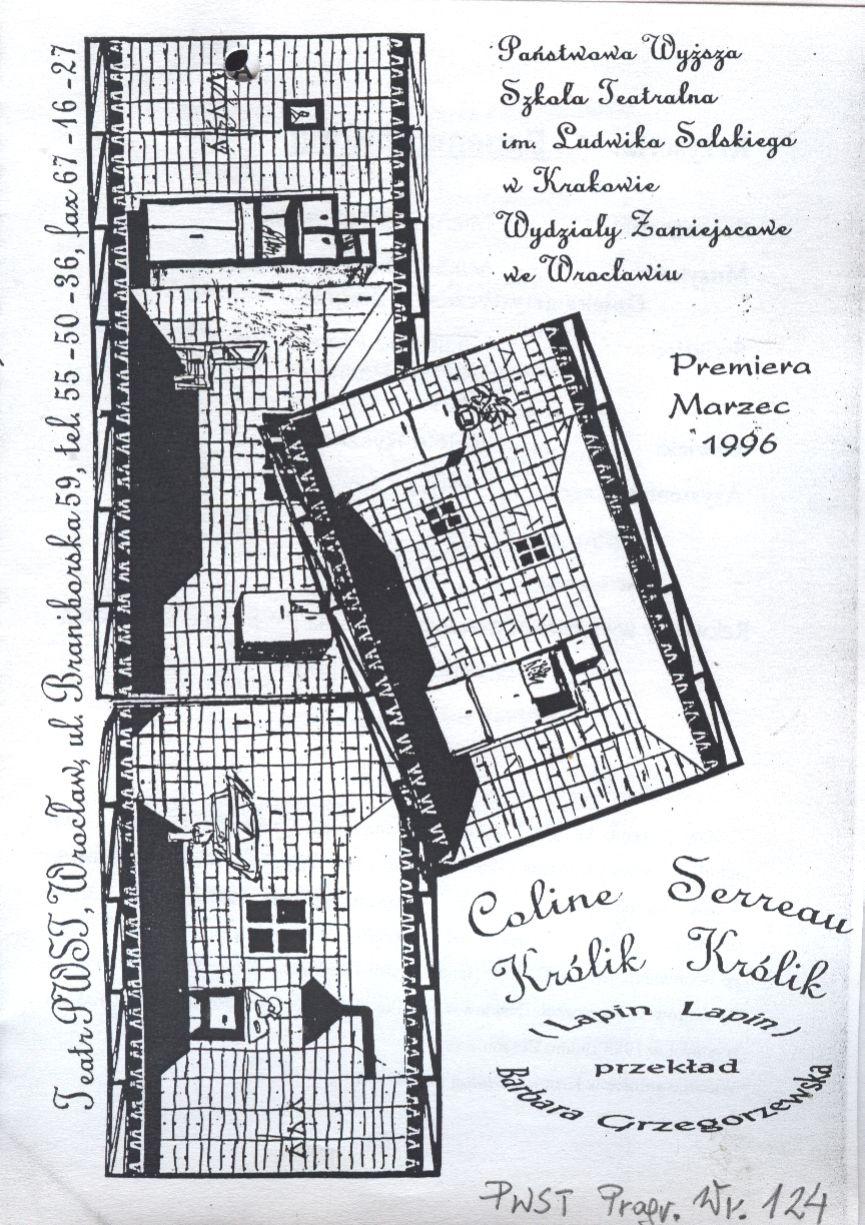 Teatr PWST, Wrocław, ul. Braniborska 59, tel. 55-50-36, fax 67-16-27
Państwowa Wyższa
Szkoła Teatralna
im. Ludwika Solskiego
w Krakowie
Wydziały Zamiejscowe
we Wrocławiu
Premiera
Marzec
1996
Coline Serreau
Królik Królik
(Lapin Lapin)
przekład
Barbara Grzegorzewska
PWST Progr. Wr. 124